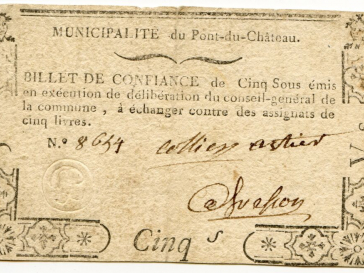 MUNICIPALITÉ du Pont-du-Château.
BILLET DE CONFIANCE de Cinq Sous émis
en exécution de délibération du conseil-général de
la commune, à échanger contre des assignats de
cinq livres.
N.º 8654
Cinq s